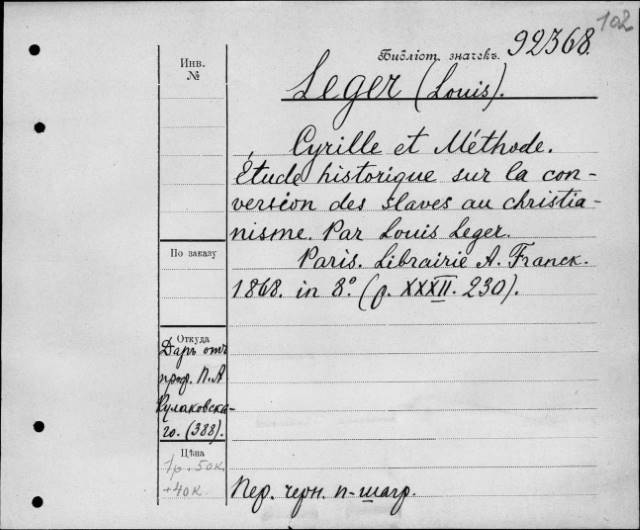 102
Библіот. значекъ. 92368.
Инв.
№
Leger (Louis).
Cyrille et Méthode.
Étude historique sur la con-
version des slaves au christia-
nisme. Par Louis Leger.
По заказу
Paris. Librairie A. Franck.
1868. in 8.º (p. XXXII. 230).
Откуда
Даръ отъ
проф. П. А
Кулаковска-
го. (388).
Цѣна
1 р. 50 к.
+ 40 к.
Пер. черн. п-шагр.